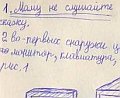 1. Маму не слушайте
сказку,
2 во-первых снаружи ц
но монитор, клавиатура,
рис 1